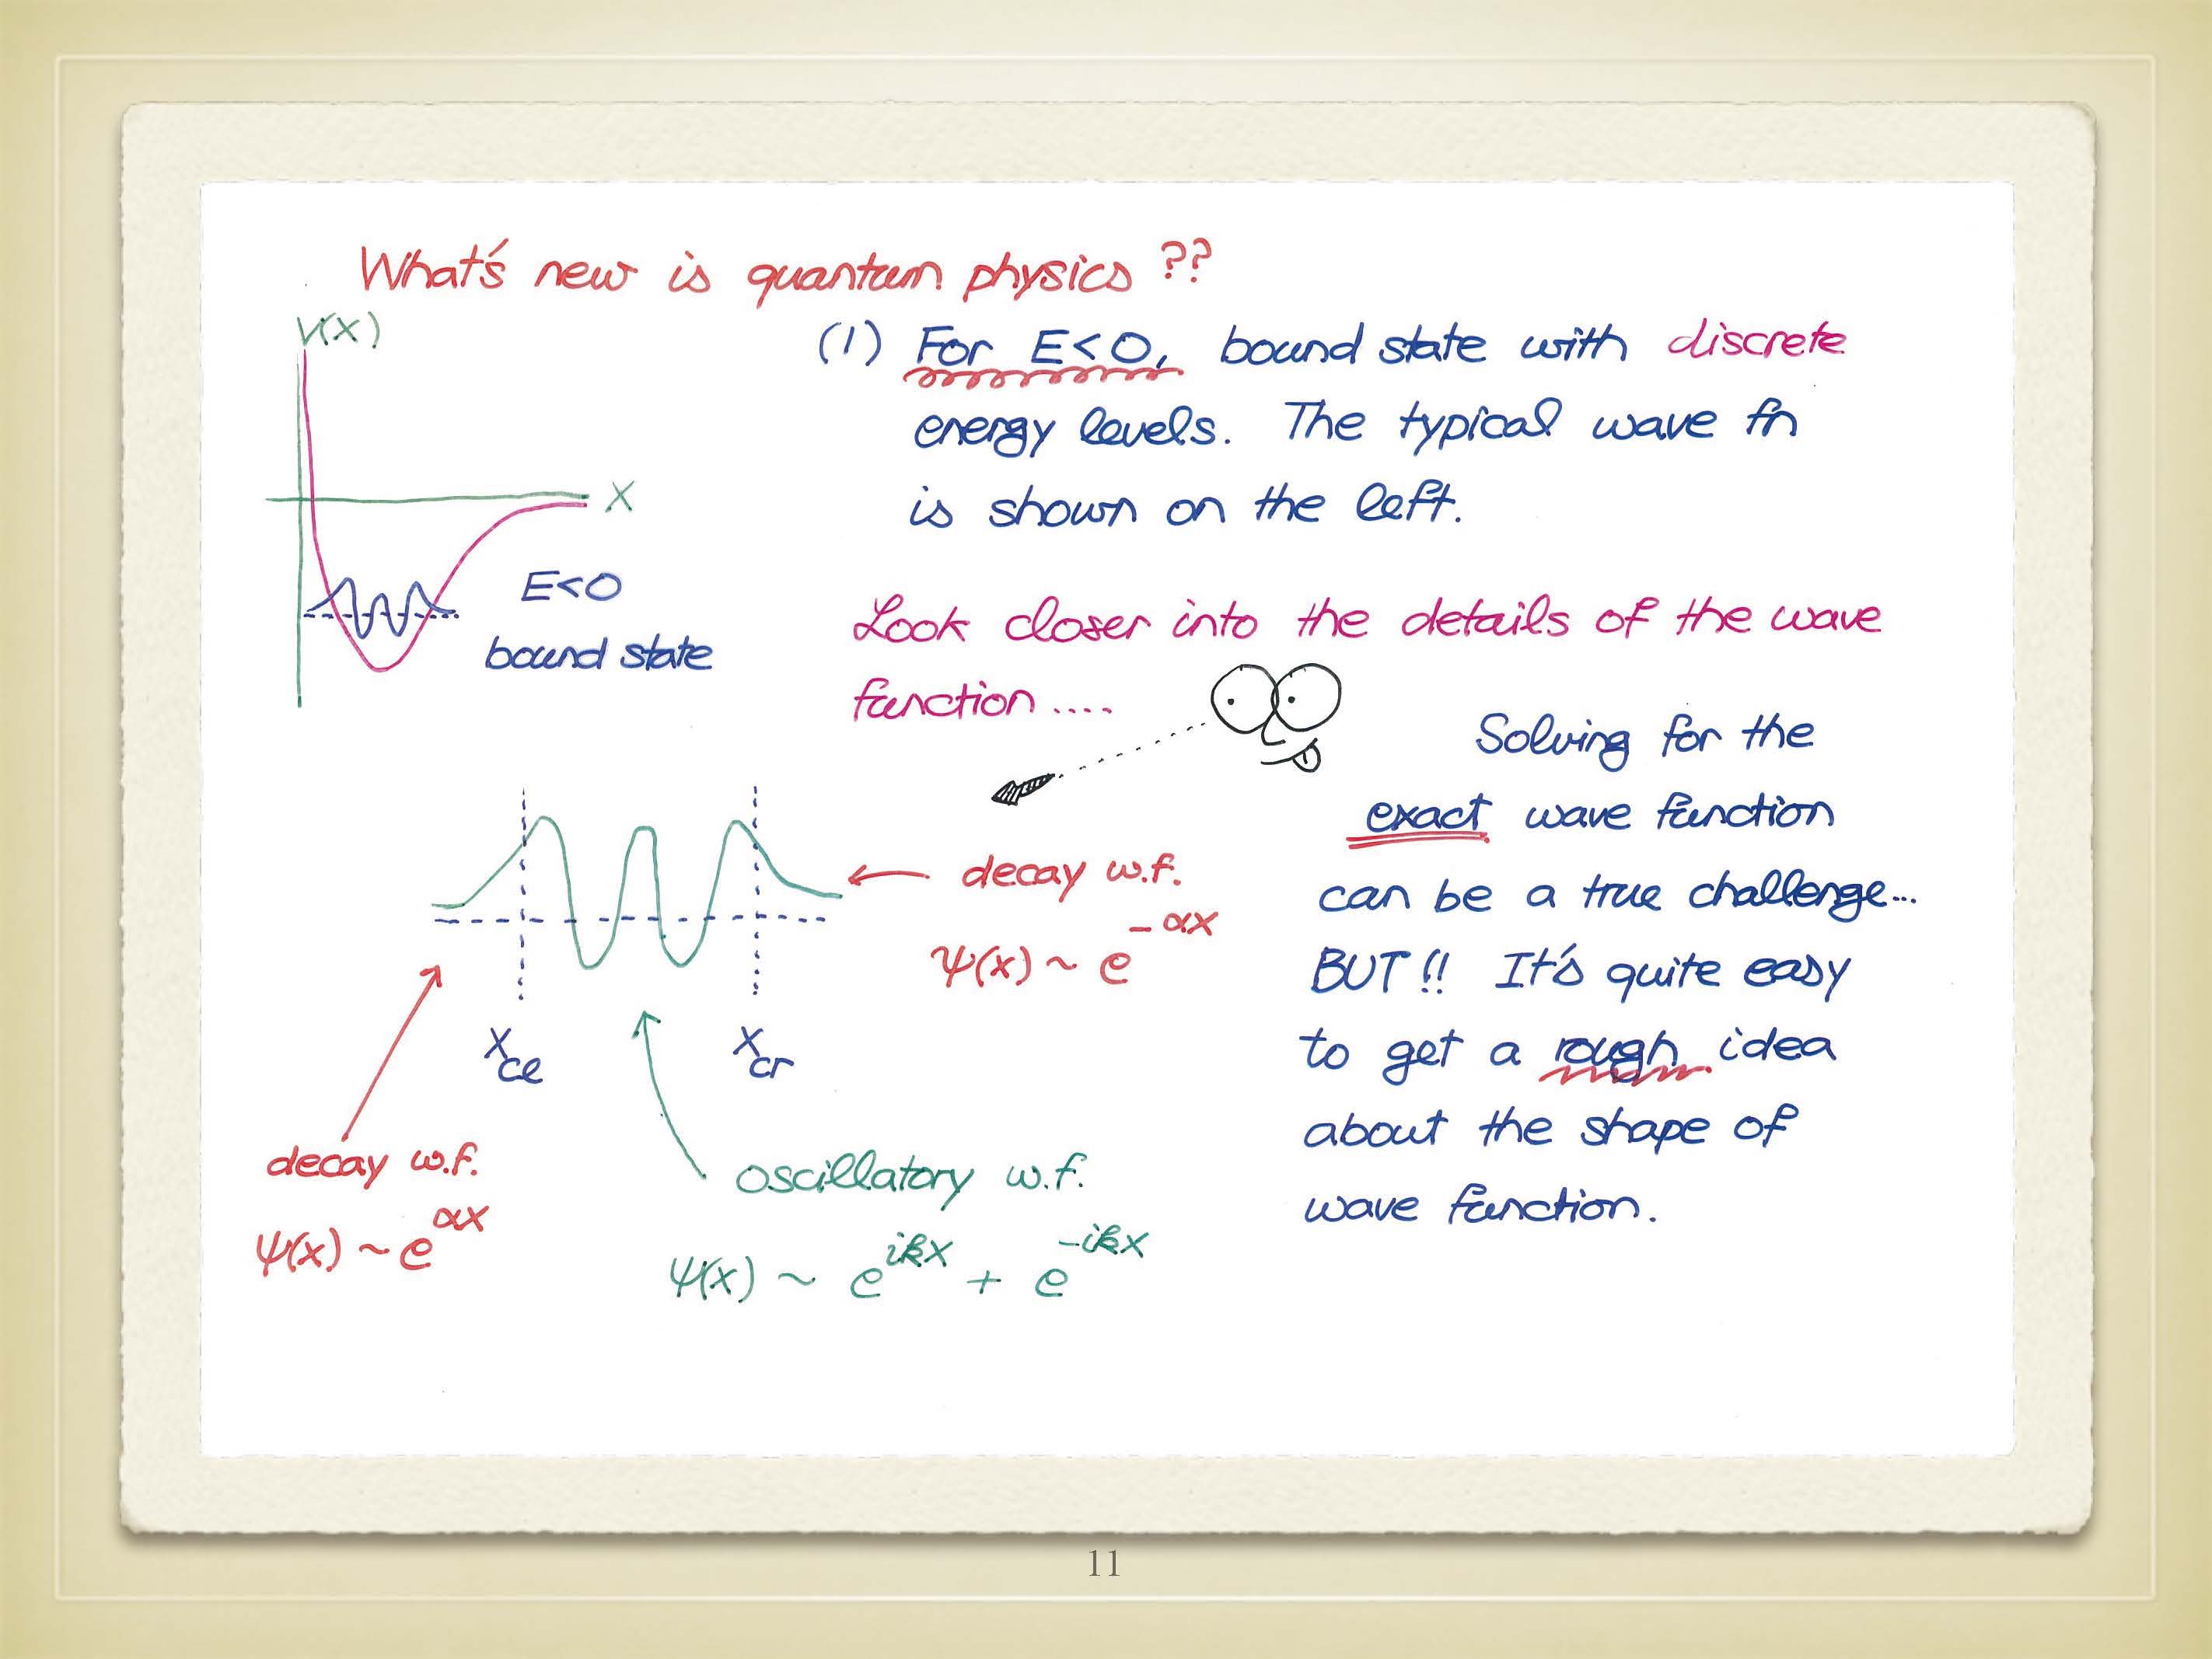 What's new is quantum physics ??
V(x)
(1) For E<0, bound state with discrete
energy levels. The typical wave fn
is shown on the left.
x
E<0
bound state
Look closer into the details of the wave
function ....
Solving for the
exact wave function
can be a true challenge...
BUT!! It's quite easy
to get a rough idea
about the shape of
wave function.
decay w.f.
ψ(x) ~ e^{-αx}
x_{cl}
x_{cr}
decay w.f.
ψ(x) ~ e^{αx}
oscillatory w.f.
ψ(x) ~ e^{ikx} + e^{-ikx}
11